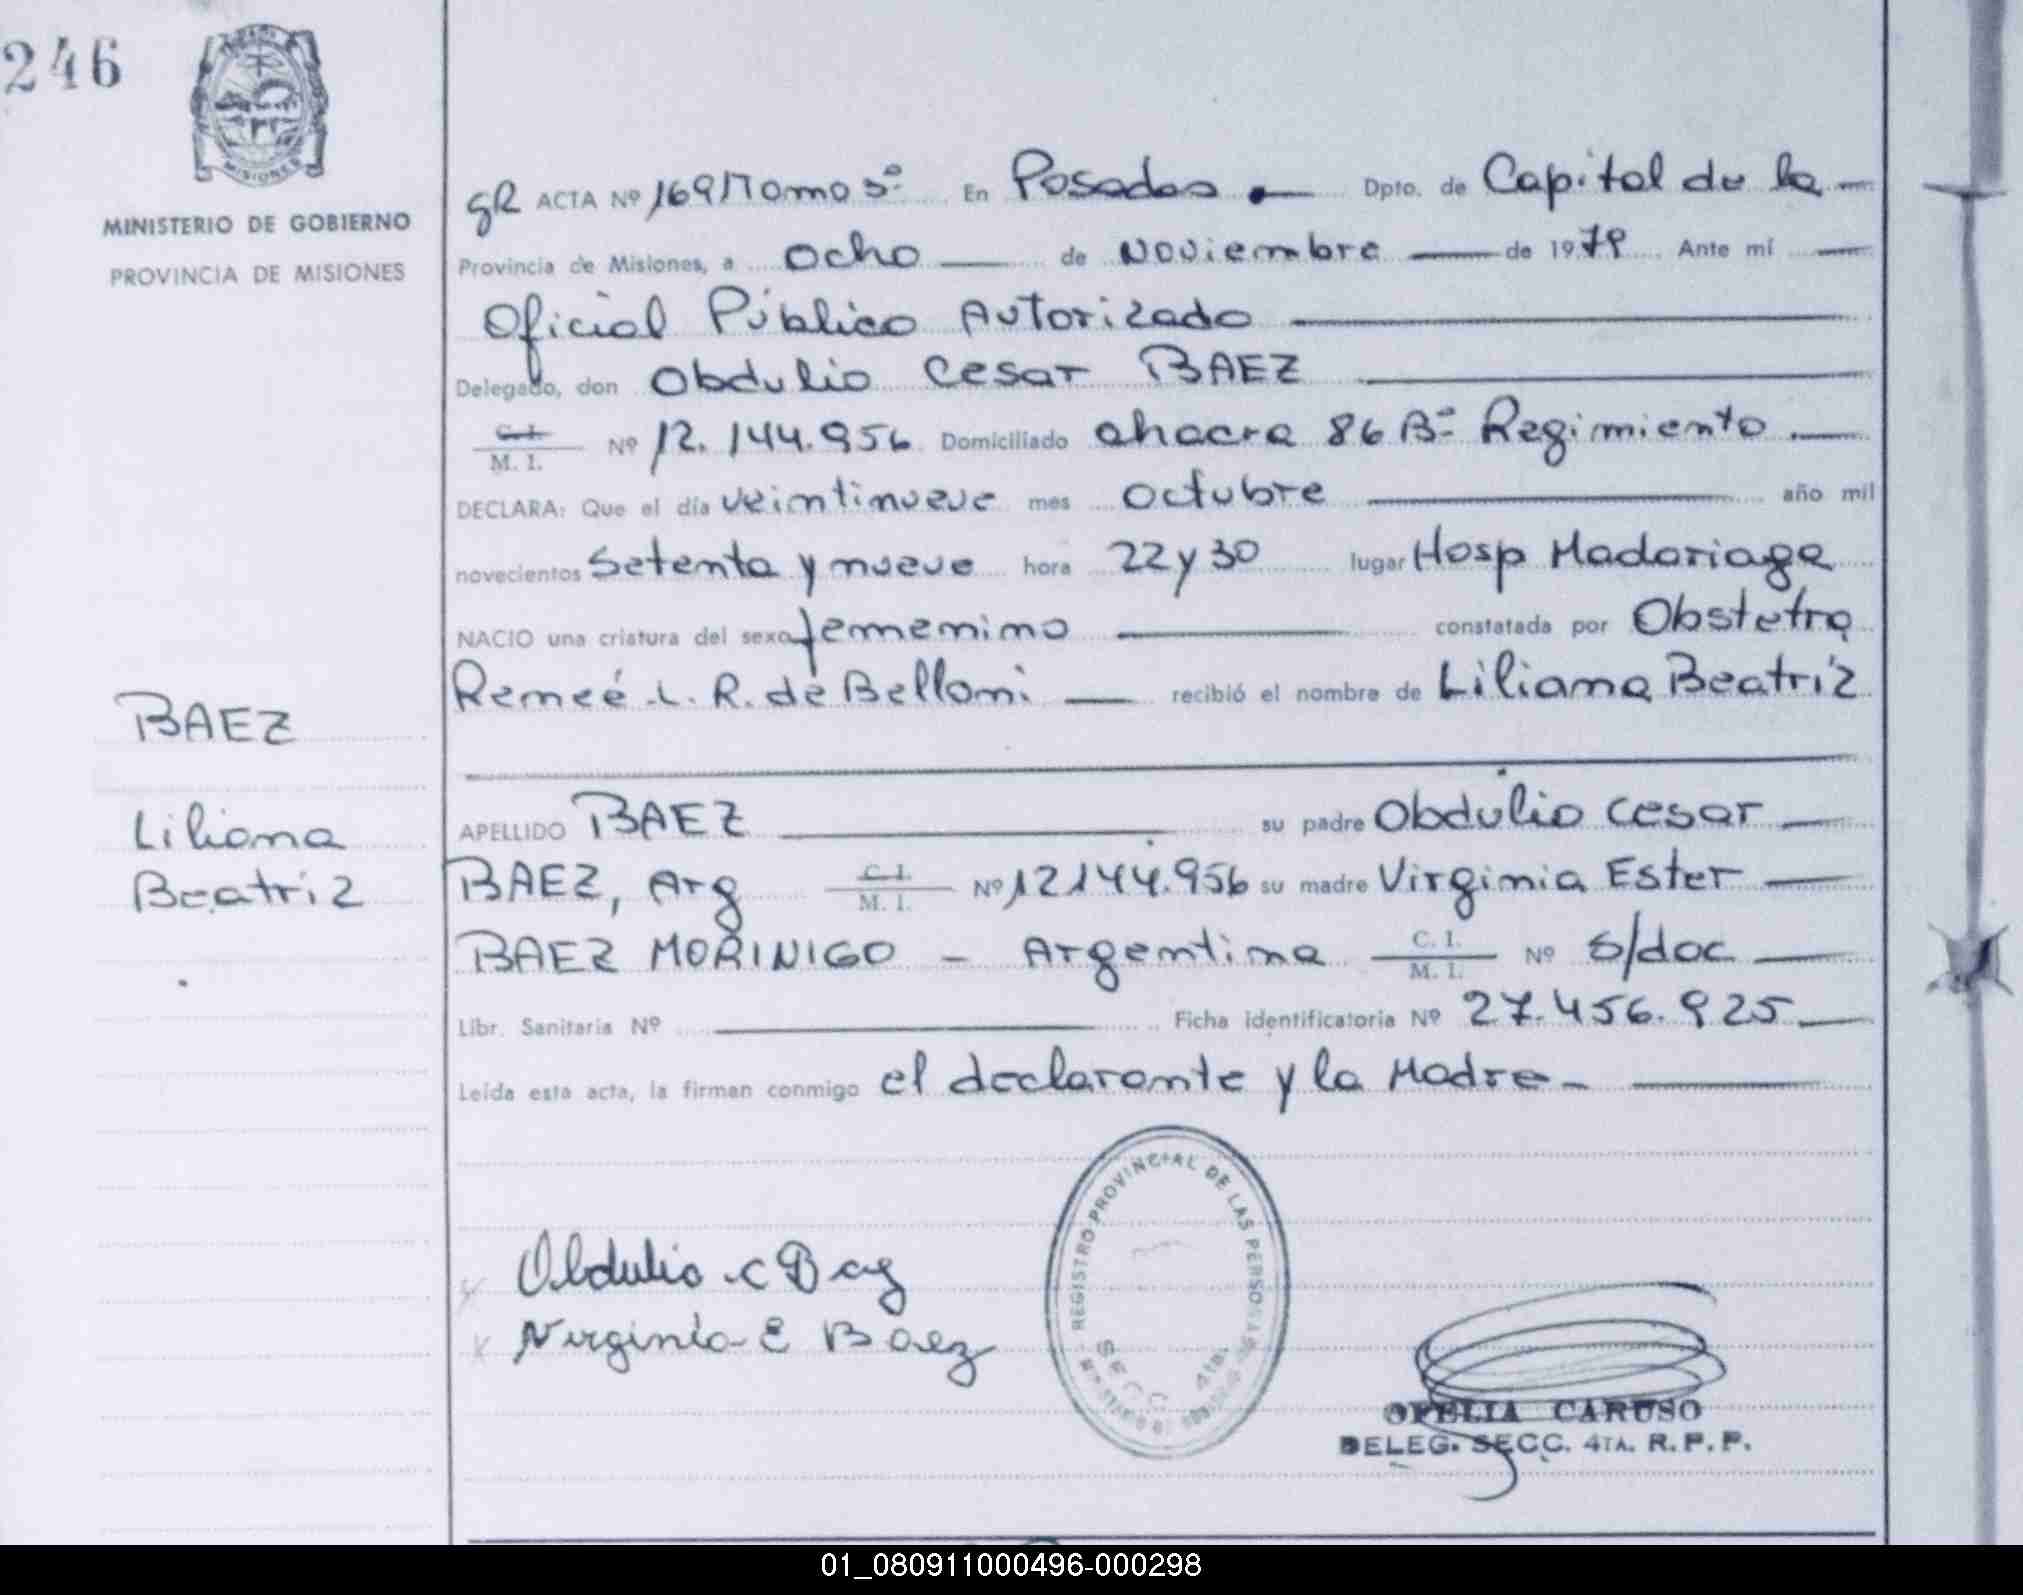 246
MISIONES
MINISTERIO DE GOBIERNO
PROVINCIA DE MISIONES
BAEZ
Liliana
Beatriz
gR ACTA Nº 1691Tomo 5º En Posadas Dpto. de Capital de la
Provincia de Misiones, a ocho de Noviembre de 1979 Ante mí
Oficial Público Autorizado
Delegado, don Obdulio Cesar BAEZ
C. I. / M. I. Nº 12.144.956 Domiciliado chacra 86 Bº Regimiento
DECLARA: Que el día veintinueve mes octubre año mil
novecientos Setenta y nueve hora 22 y 30 lugar Hosp Madariaga
NACIO una criatura del sexo femenino constatada por Obstetra
Remeé L. R. de Belloni recibió el nombre de Liliana Beatriz
APELLIDO BAEZ su padre Obdulio Cesar
BAEZ, Arg C. I. / M. I. Nº 12144.956 su madre Virginia Ester
BAEZ MORINIGO - Argentina C. I. / M. I. Nº S/doc
Libr. Sanitaria Nº Ficha identificatoria Nº 27.456.925
Leída esta acta, la firman conmigo el declarante y la Madre
REGISTRO PROVINCIAL DE LAS PERSONAS
SECC 4ta.
Obdulio C Baez
Virginia E Baez
OFELIA CARUSO
DELEG. SECC. 4TA. R. P. P.
01_080911000496-000298